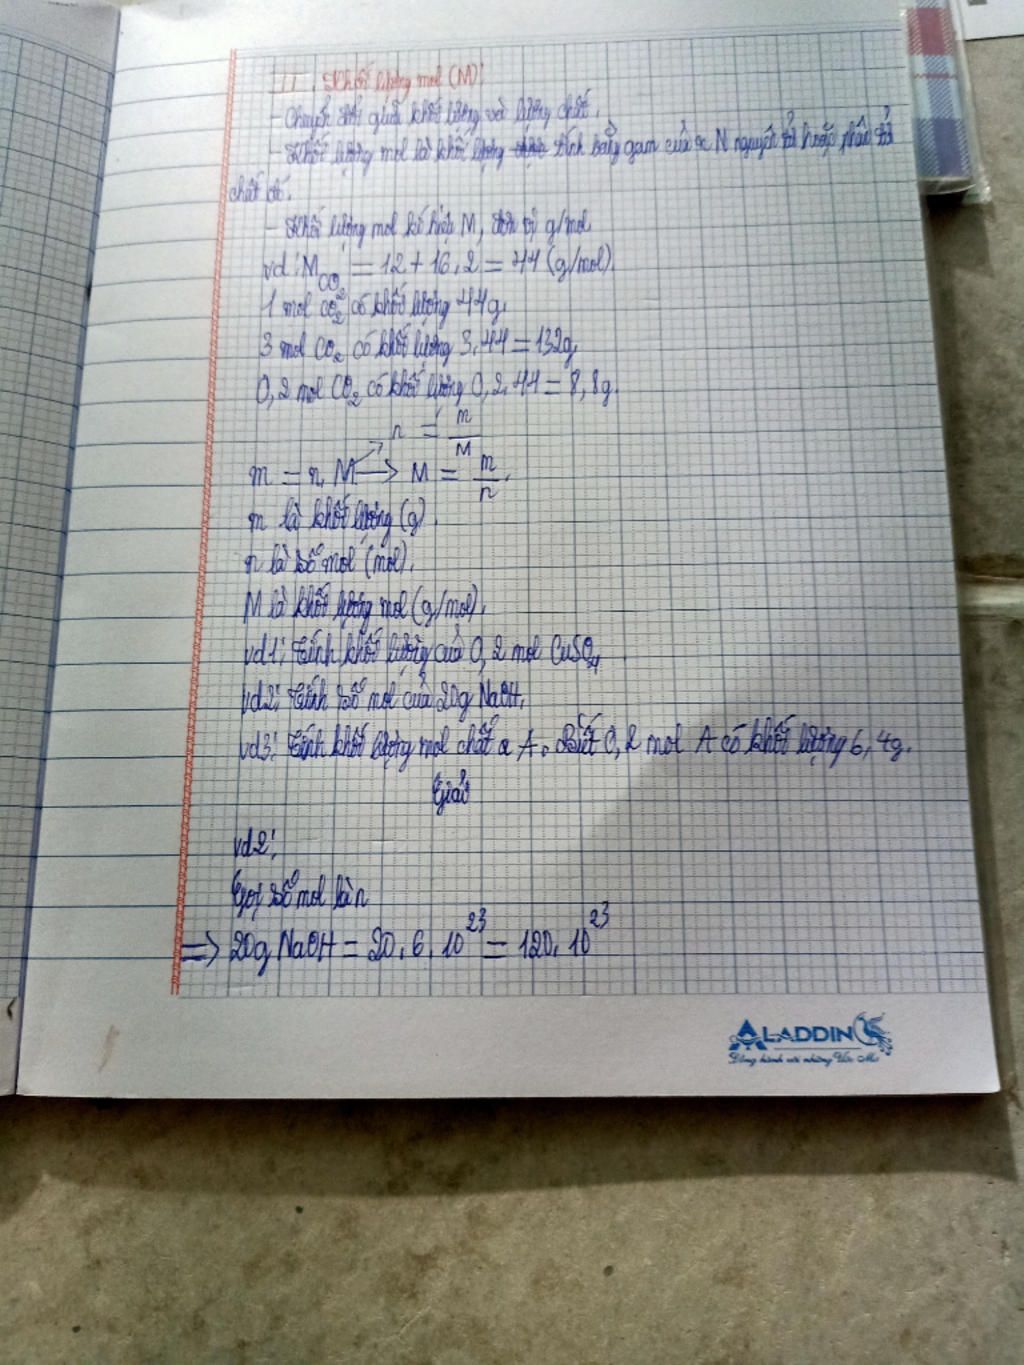 II. Khối lượng mol (M):
- Chuyển đổi giữa khối lượng và lượng chất.
- Khối lượng mol là khối lượng tính bằng gam của N nguyên tử hoặc phân tử
chất đó.
- Khối lượng mol kí hiệu M, đơn vị g/mol
vd: M CO₂ = 12 + 16.2 = 44 (g/mol).
1 mol CO₂ có khối lượng 44g.
3 mol CO₂ có khối lượng 3.44 = 132g
0,2 mol CO₂ có khối lượng 0,2.44 = 8,8g.
n = m/M
m = n.M → M = m/n.
m là khối lượng (g).
n là số mol (mol).
M là khối lượng mol (g/mol).
vd1: Tính khối lượng của 0,2 mol CuSO₄
vd2: Tính số mol của 20g NaOH.
vd3: Tính khối lượng mol chất A. Biết 0,2 mol A có khối lượng 6,4g.
Giải
vd2:
Gọi số mol là n
=> 20g NaOH = 20.6.10²³ = 120.10²³
ALADDIN
Đồng hành với những Ước Mơ